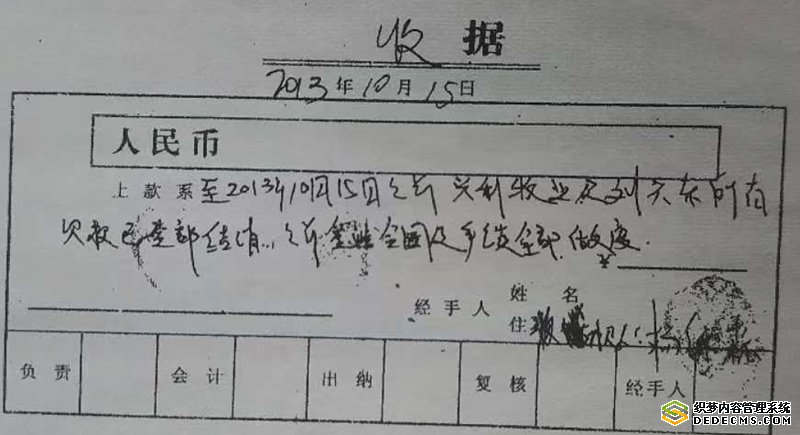 收 据
2013年10月15日
人民币
上款系至2013年10月15日之前 刘天东所有
欠款已全部结清, 之前 全国及手续全部做废.
经手人 姓名
住
负责 会计 出纳 复核 经手人
织梦内容管理系统
DEDECMS.COM